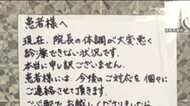 患者様へ
現在、院長の体調が大変悪く
診療できない状況です。
本当に申し訳ございません。
患者様には、今後のご対応を個々に
ご連絡させて頂きます。